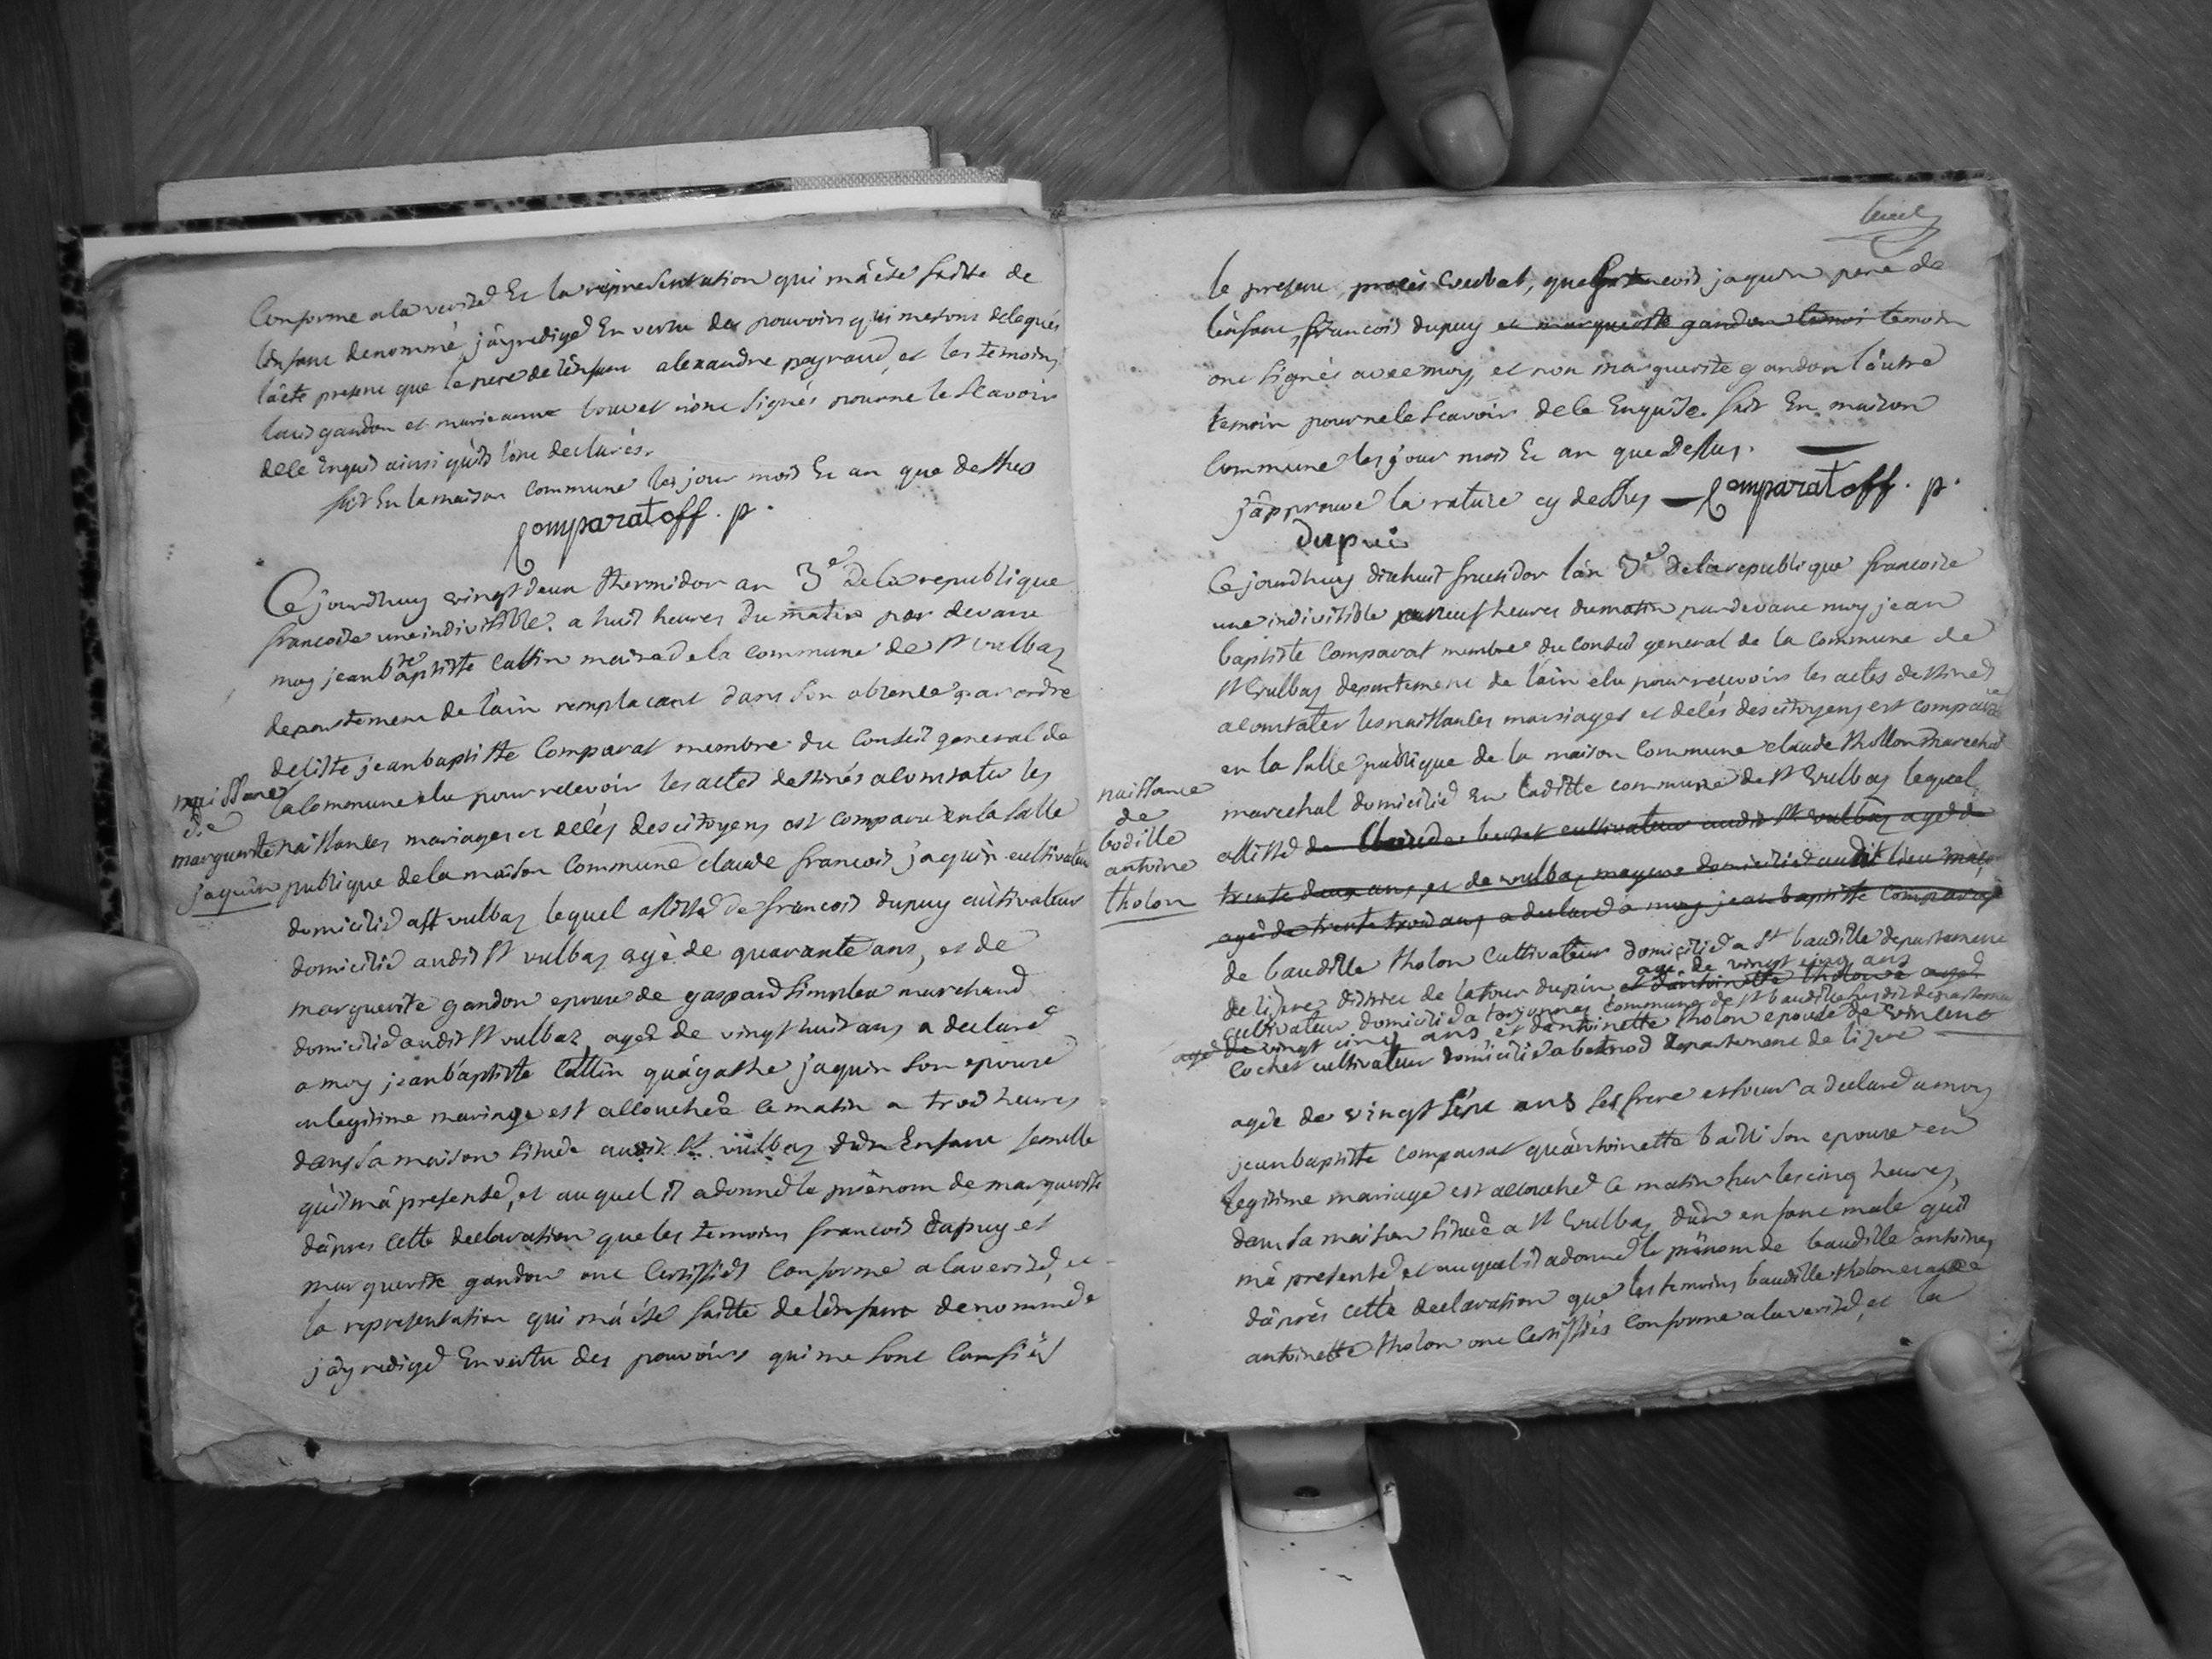 Conforme a la verité Et la representation qui mà èté faitte de
lenfant denommé, j'ay redigé En vertu des pouvoirs qui me sont delegués
làcte present que le pere de lènfant alexandre peyraud, et les temoins
louis gandon et marieanne bouvet nònt signés pour ne le scavoir
de ce Enquis ainsi qu'ils lònt declarés.
fait En la maison commune les jour mois Et an que dessus
Comparat off. p.
Ce jourdhuy vingt deux thermidor an 3e de la republique
francoise une indivisible. a huit heures du matin par devant
moy jean baptiste Cattin maire de la commune de st vulbas
departement de làin remplacant dans son absence par ordre
de liste jean baptiste Comparat membre du Conseil general de
la Commune elu pour recevoir les actes destinés a constater les
naissances mariages et décés des citoyens est comparu En la salle
publique de la maison Commune claude francois jaquin cultivateur
naissance
de
marguerite
jaquin
domicilié a st vulbas lequel assisté de francois dupuy cultivateur
domicilié audit st vulbas agè de quarante ans, et de
marguerite gandon epouse de gaspard simplex marchand
domicilié audit st vulbas agée de vingt huit ans, a declaré
a moy jean baptiste Cattin qu'agathe jaquin son epouse
en legitime mariage est accouchée ce matin a trois heures
dans sa maison située audit st vulbas dun Enfant femelle
quìl mà presenté, et auquel il a donné le prènom de marguerite
dàpres cette declaration que les temoins francois dupuy et
marguerite gandon ont certiffiés conforme a la verité, et
la representation qui mà été faitte de lènfant denommée
j'ay redigé En vertu des pouvoirs qui me sont confiés
le present procès verbal, que francois jaquin pere de
lènfant, francois dupuy et marguerite gandon temoi temoin
ont signés avec moy, et non marguerite gandon làutre
temoin pour ne le scavoir de ce Enquise. fait En maison
Commune les jour mois Et an que Dessus.
j'approuve la rature cy dessus Comparat off. p.
dupui
Ce jourdhuy dixhuit fructidor làn 3e de la republique francoise
une indivisible a neuf heures du matin par devant moy jean
baptiste Comparat membre du Conseil general de la commune de
st Vulbas departement de làin elu pour recevoir les actes destinés
a constater les naissances mariages et décés des citoyens est comparu
en la salle publique de la maison Commune claude thollon marechal
marechal domicilié En laditte commune de st Vulbas lequel
naissance
de
bodille
antoine
tholon
assisté de cultivateur audit st vulbas agé de
trente deux ans, et de vulbas domicilié audit lieu
agé de trente trois ans a declaré a moy jean baptiste Comparat
de baudille tholon Cultivateur domicilié a st baudille departement
de lizere district de latour dupin et dantoinette tholon agé
agé de vingt cinq ans
cultivateur domicilié a commune de st baudille susdit departement
agé de vingt cinq ans et dantoinette tholon epouse de vincent
Cochet cultivateur domicilié a departement de lizere
agée de vingt sept ans ses frere et soeur a declaré a moy
jean baptiste Comparat quàntoinette bailli son epouse en
legitime mariage est accouchée ce matin sur les cinq heures,
dans sa maison située a st Vulbas dun enfant male quil
mà presenté, et auquel il a donné le prènom de baudille antoine,
dàprès cette declaration que les temoins baudille tholon et
antoinette tholon ont certiffiés conforme a la verité, et la